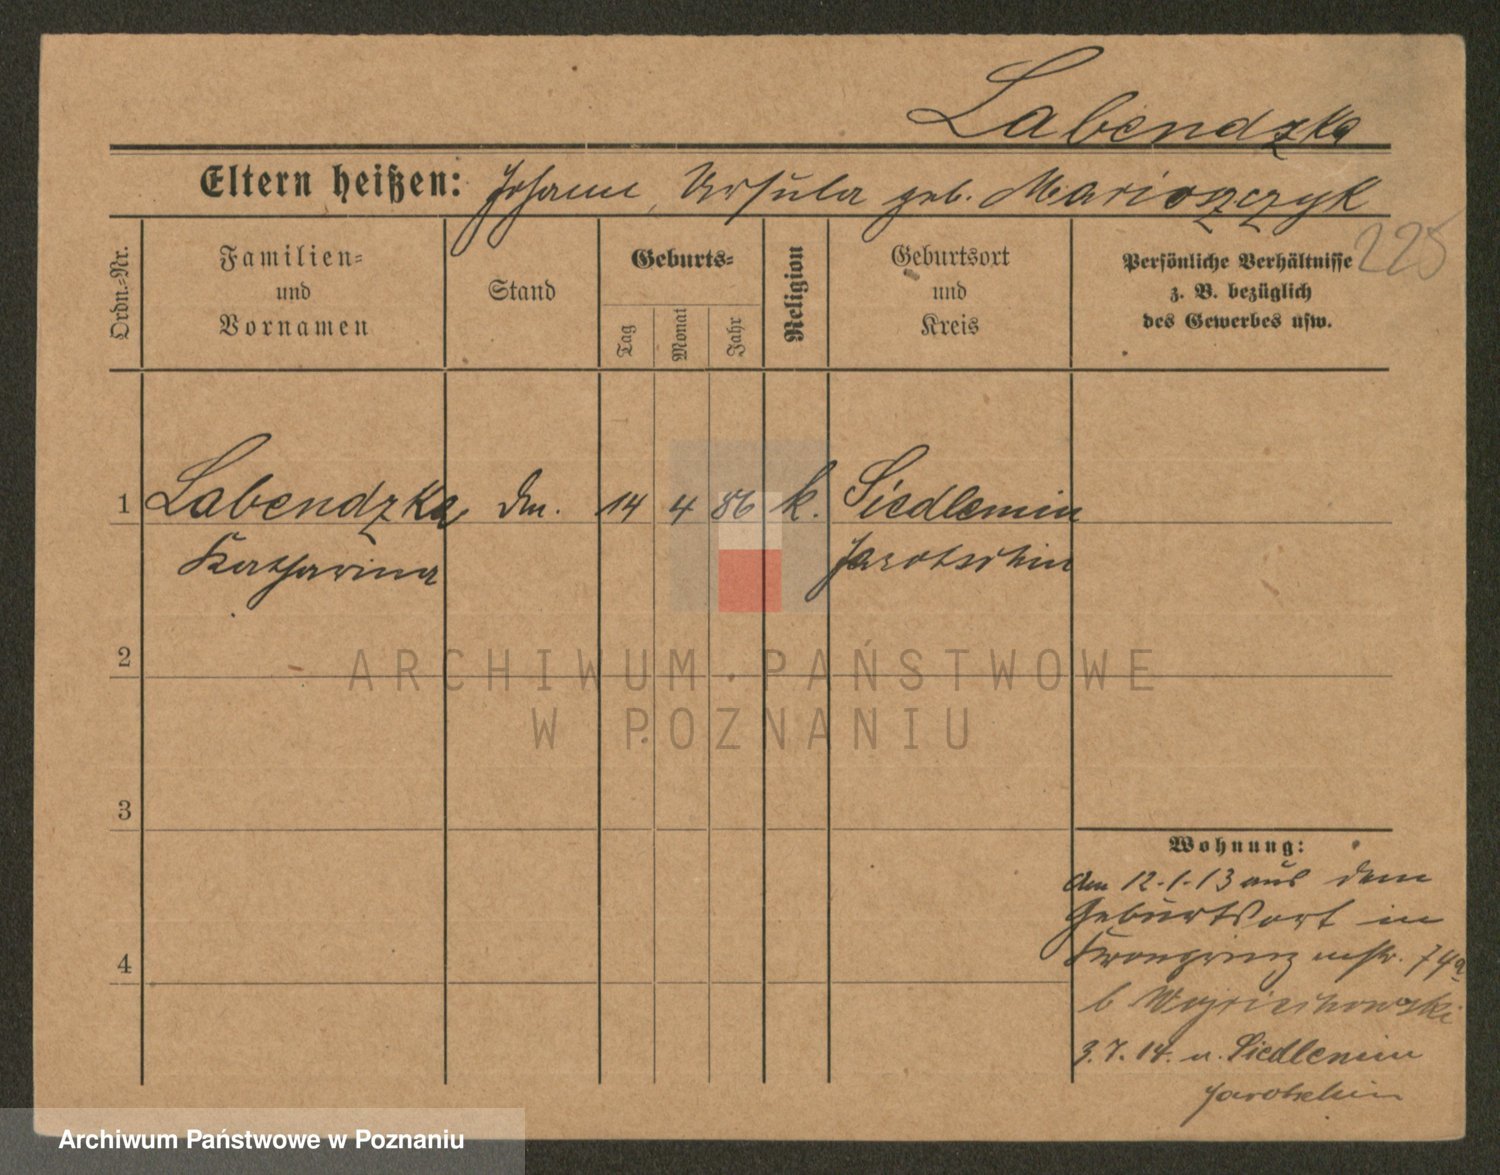 Labendzka
Eltern heißen: Johann, Ursula geb. Marioszczyk
225
Ordn.-Nr.
Familien-
und
Vornamen
Stand
Geburts-
Tag
Monat
Jahr
Religion
Geburtsort
und
Kreis
Persönliche Verhältnisse
z. B. bezüglich
des Gewerbes usw.
1 Labendzka Dm. 14 4 86 k. Siedlemin
Katharina Jarotschin
2
ARCHIWUM PAŃSTWOWE
W POZNANIU
3
Wohnung:
Am 12.1.13 aus dem
Geburtsort in
Kronprinzenstr. 74a
b Wojciechowski
4
3.7.14. n. Siedlemin
Jarotschin
Archiwum Państwowe w Poznaniu